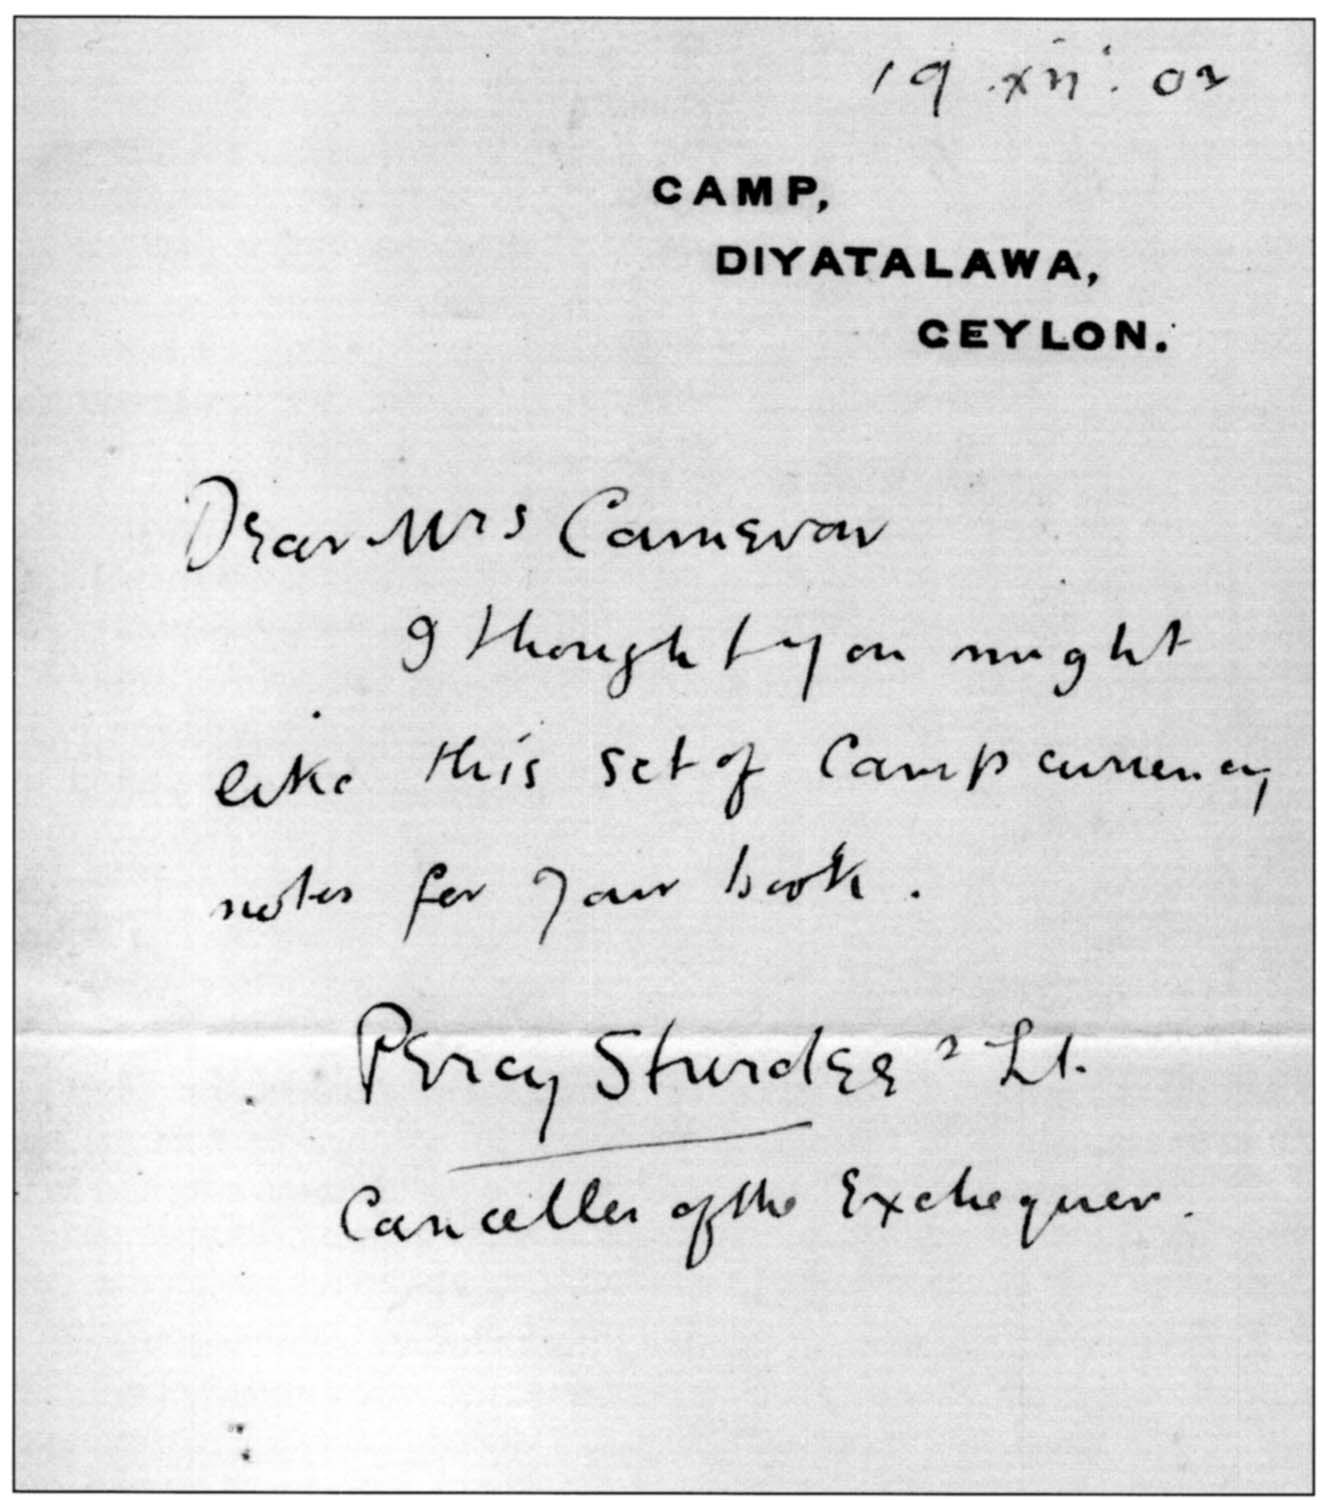 19.XII.02
CAMP,
DIYATALAWA,
CEYLON.
Dear Mrs Cameron
I thought you might
like this set of Camp currency
notes for your book.
Percy Sturdee 2 Lt.
Canceller of the Exchequer.